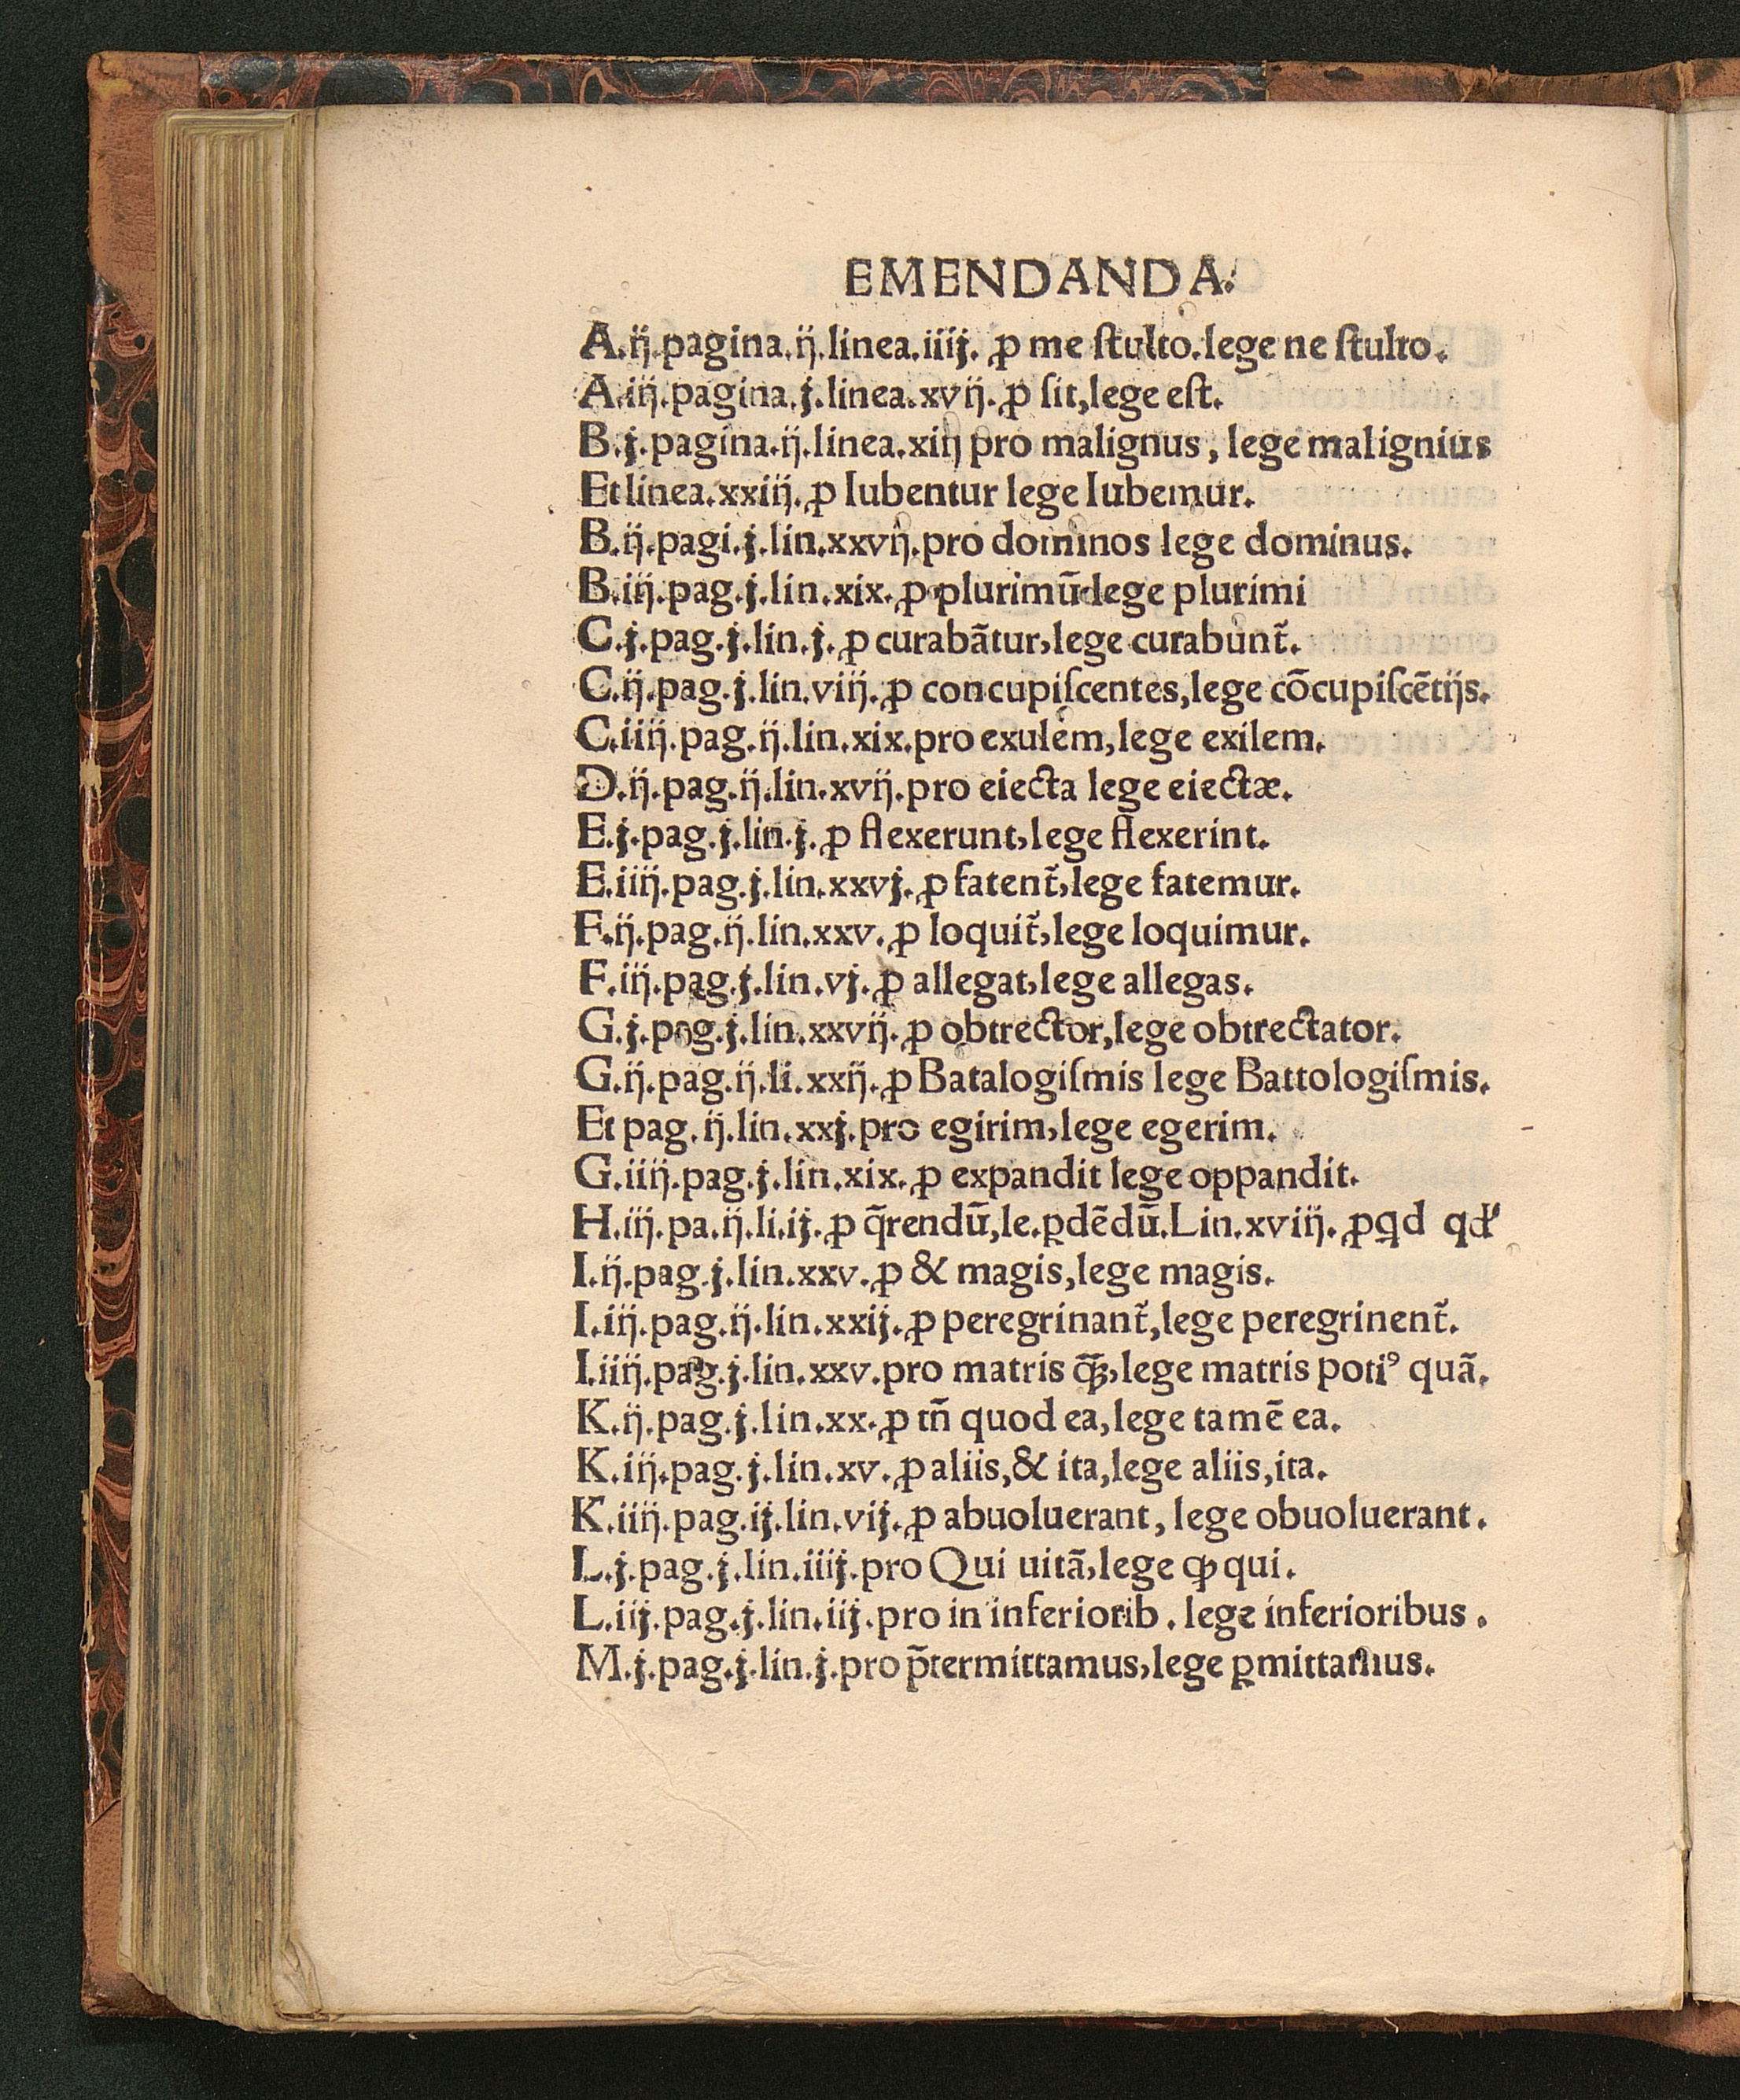 EMENDANDA.
A.ij.pagina.ij.linea.iiij. ꝓ me ſtulto.lege ne ſtulto.
A.iij.pagina.j.linea.xvij. ꝓ ſit,lege eſt.
B.j.pagina.ij.linea.xiij pro malignus, lege malignius
Et linea.xxiij. ꝓ Iubentur lege Iubemur.
B.ij.pagi.j.lin.xxvij.pro dominos lege dominus.
B.iij.pag.j.lin.xix. ꝓ plurimū lege plurimi
C.j.pag.j.lin.j. ꝓ curabãtur,lege curabunt̃.
C.ij.pag.j.lin.viij. ꝓ concupiſcentes,lege cõcupiſcẽtijs.
C.iiij.pag.ij.lin.xix.pro exulem,lege exilem.
D.ij.pag.ij.lin.xvij.pro eiecta lege eiectæ.
E.j.pag.j.lin.j. ꝓ flexerunt,lege flexerint.
E.iiij.pag.j.lin.xxvj. ꝓ fatent̃,lege fatemur.
F.ij.pag.ij.lin.xxv. ꝓ loquit̃,lege loquimur.
F.iij.pag.j.lin.vj. ꝓ allegat,lege allegas.
G.j.pag.j.lin.xxvij. ꝓ obtrector,lege obtrectator.
G.ij.pag.ij.li.xxij. ꝓ Batalogiſmis lege Battologiſmis.
Et pag.ij.lin.xxj.pro egirim,lege egerim.
G.iiij.pag.j.lin.xix. ꝓ expandit lege oppandit.
H.iij.pa.ij.li.ij. ꝓ q̃rendũ,le.ꝑdẽdũ.Lin.xviij. ꝓ qd
I.ij.pag.j.lin.xxv. ꝓ & magis,lege magis.
I.iij.pag.ij.lin.xxij. ꝓ peregrinant̃,lege peregrinent̃.
I.iiij.pag.j.lin.xxv.pro matris lege matris potiꝰ quã.
K.ij.pag.j.lin.xx. ꝓ tñ quod ea,lege tamẽ ea.
K.iij.pag.j.lin.xv. ꝓ aliis,& ita,lege aliis,ita.
K.iiij.pag.ij.lin.vij. ꝓ abuoluerant, lege obuoluerant.
L.j.pag.j.lin.iiij.pro Qui uitã,lege ꝙ qui.
L.iij.pag.j.lin.iij.pro in inferiorib. lege inferioribus.
M.j.pag.j.lin.j.pro p̃termittamus,lege ꝑmittamus.